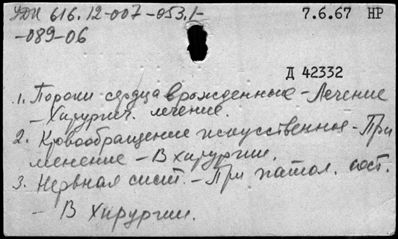 УДК 616.12-007-053.1-
7.6.67 НР
-089-06
Д 42332
1. Пороки сердца врожденные - Лечение
- Хирургич. лечение.
2. Кровообращение искусственное - При
менение - В хирургии.
3. Нервная сист. - При патол. сост.
- В хирургии.